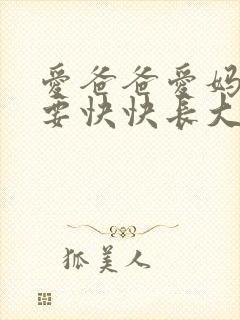 愛爸爸愛妈
要快快長大
狐美人